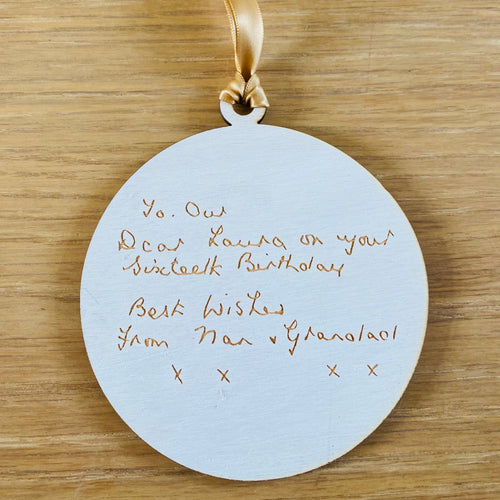 To. Our
Dear Laura on your
Sixteeth Birthday
Best Wishes
From Nan & Grandad
x x x x